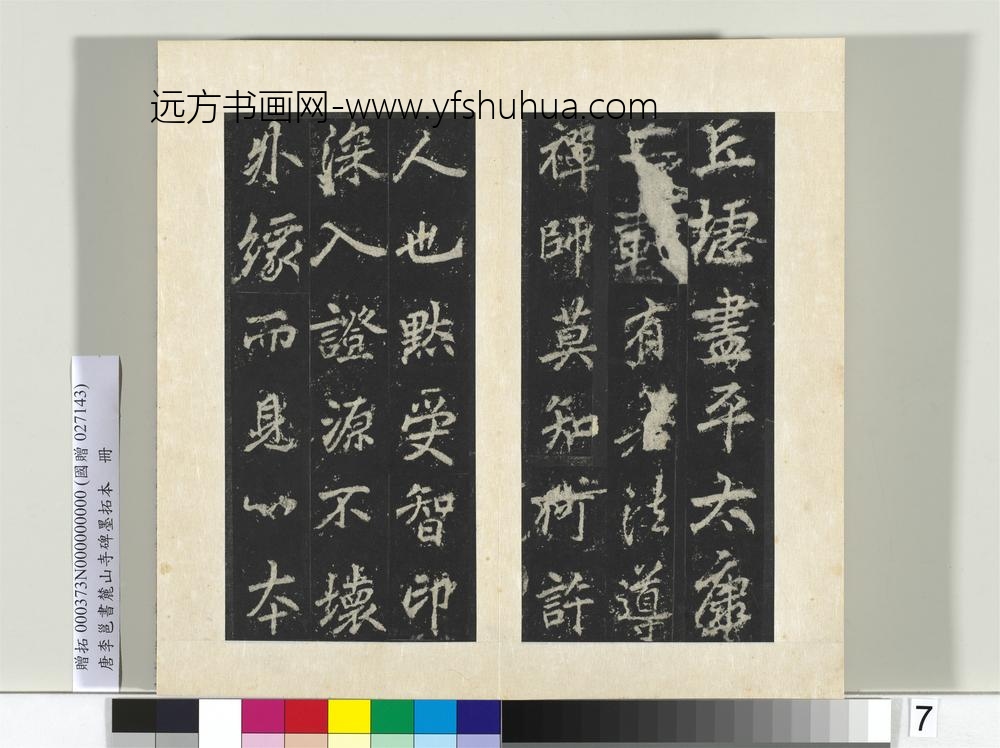 远方书画网-www.yfshuhua.com
丘墟盡平太康
載有若法導
禪師莫知何許
人也默受智印
深入證源不壞
外緣而見心本
贈拓 000373N000000000 (國贈 027143)
唐李邕書麓山寺碑墨拓本 冊
7